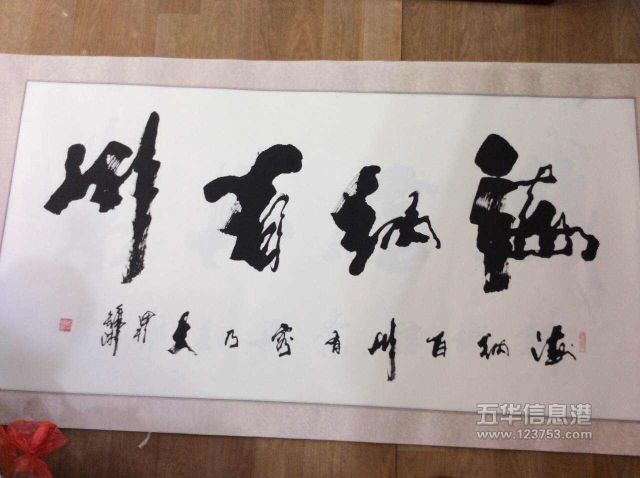 海纳百川
海纳百川有容乃大
五华信息港
www.123753.com